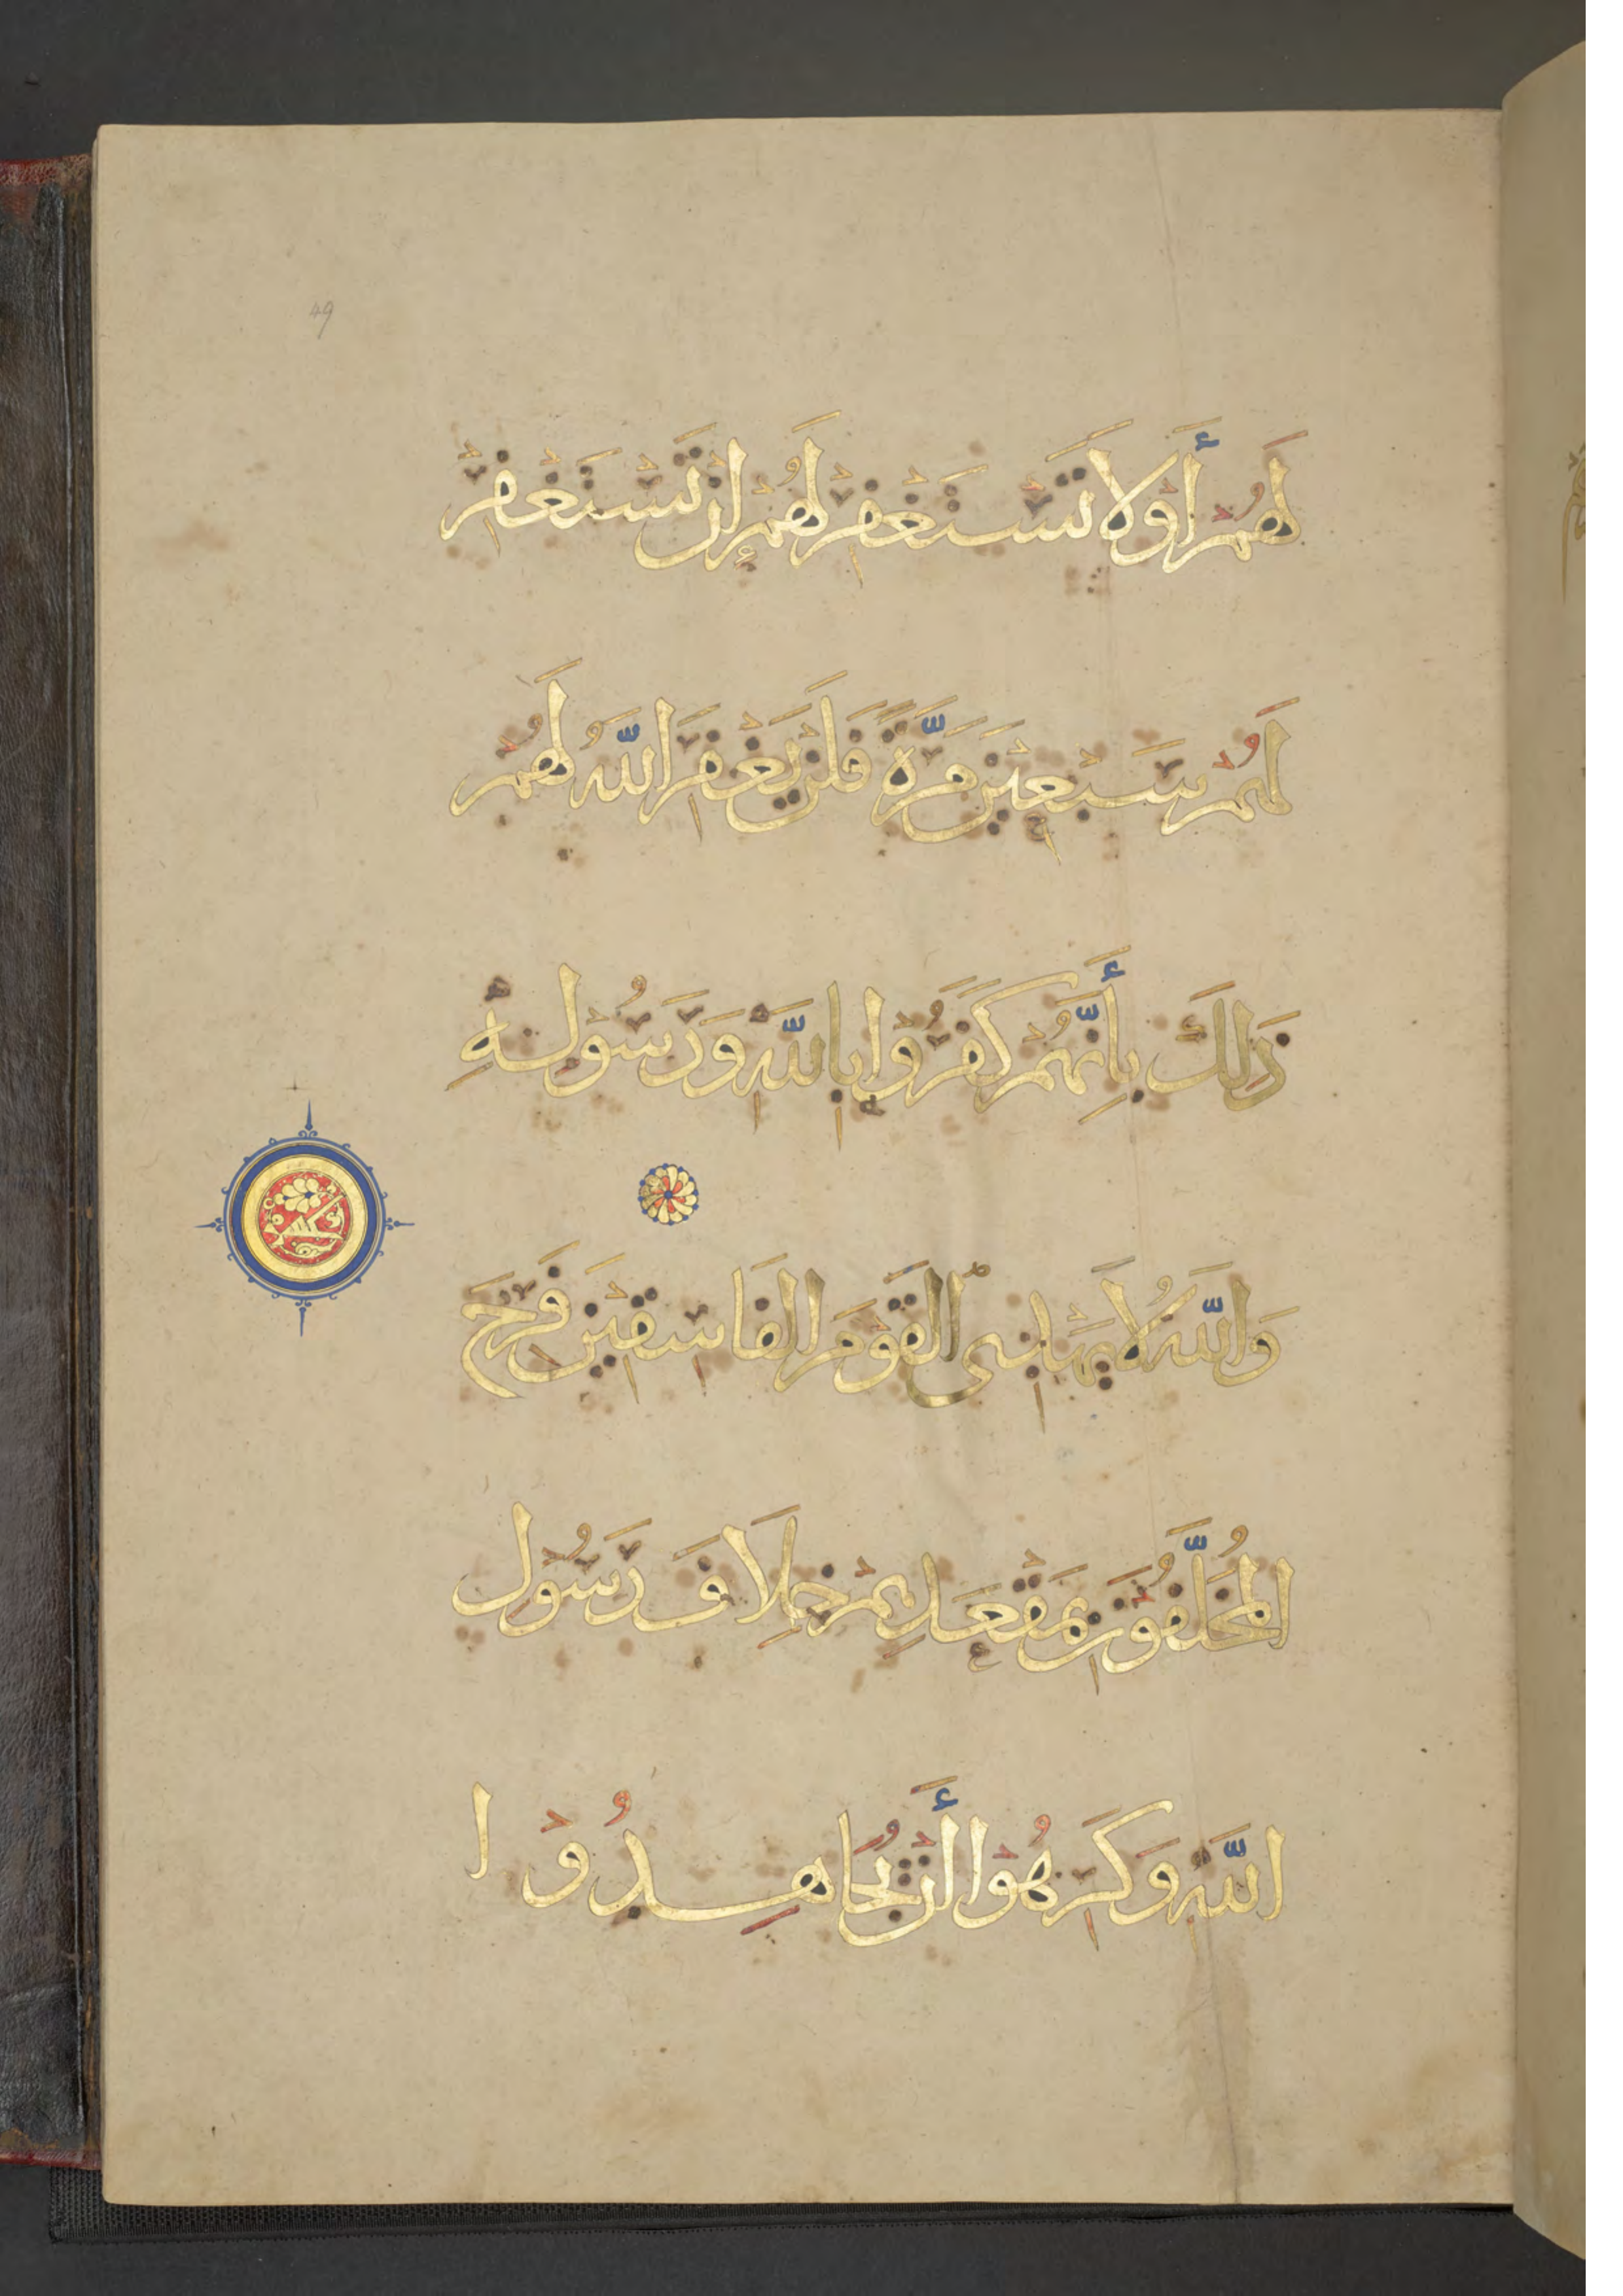 49
لَهُمْ أَوْ لَا تَسْتَغْفِرْ لَهُمْ إِنْ تَسْتَغْفِرْ
لَهُمْ سَبْعِيْنَ مَرَّةً فَلَنْ يَغْفِرَ اللَّهُ لَهُمْ
ذَلِكَ بِأَنَّهُمْ كَفَرُوْا بِاللَّهِ وَرَسُوْلِهِ
وَاللَّهُ لَا يَهْدِى الْقَوْمَ الْفَاسِقِيْنَ فَرِحَ
الْمُخَلَّفُوْنَ بِمَقْعَدِهِمْ خِلَافَ رَسُوْلِ
اللَّهِ وَكَرِهُوْا أَنْ يُجَاهِدُوْا